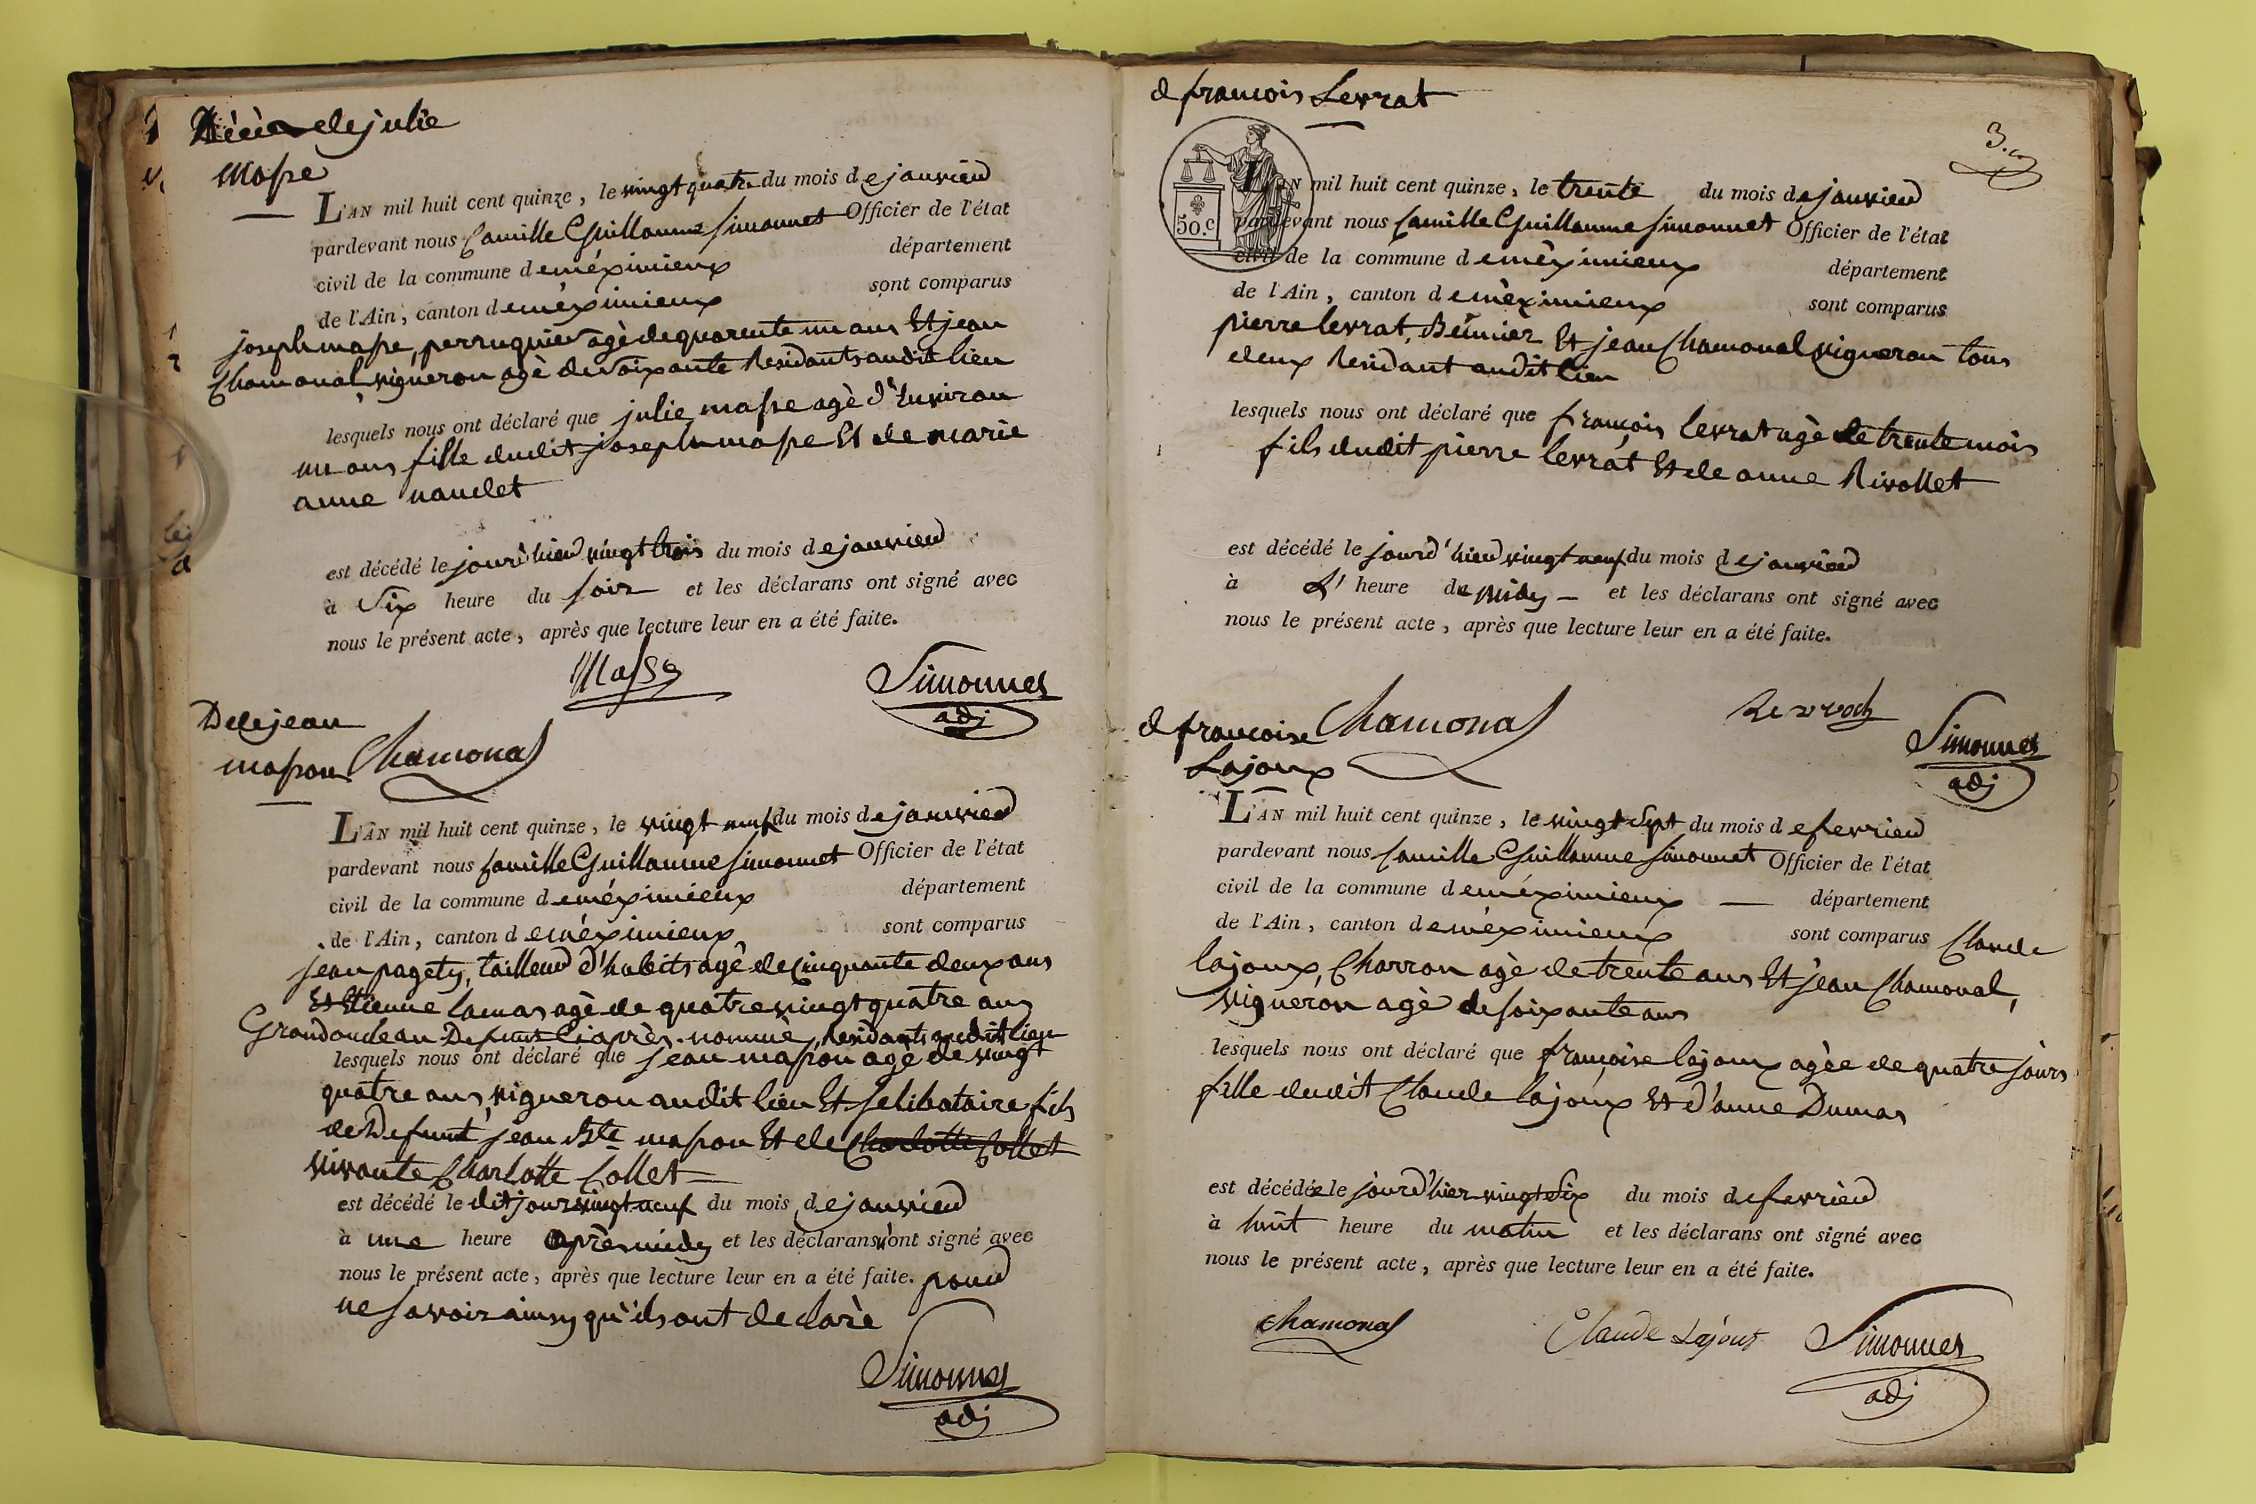 Décès de julie
masse
L'AN mil huit cent quinze, le vingt quatre du mois de janvier
pardevant nous Camille Guillaume Simonnet Officier de l'état
civil de la commune de méximieux département
de l'Ain, canton de méximieux sont comparus
joseph masse, perruquier agè de quarente un ans Et jean
Chamonal, vigneron agè de soixante Residants audit lieu
lesquels nous ont déclaré que julie masse agè d'Environ
un ans fille dudit joseph masse Et de marie
anne nandet
est décédé le jourd'hier vingt trois du mois de janvier
à Six heure du soir et les déclarans ont signé avec
nous le présent acte, après que lecture leur en a été faite.
Masse Simonnet
adj
De jean
masson Chamonal
L'AN mil huit cent quinze, le vingt neuf du mois de janvier
pardevant nous Camille Guillaume Simonnet Officier de l'état
civil de la commune de méximieux département
de l'Ain, canton de méximieux sont comparus
jean pagety, tailleur d'habits agé de Cinquante deux ans
Et Etienne lamas agè de quatre vingt quatre ans
Grand oncle au Defunt Ci après nommé, Residants audit lieu
lesquels nous ont déclaré que jean masson agè de vingt
quatre ans, vigneron audit lieu Et Selibataire fils
de Defunt jean Bte masson Et de Charlotte Collet
vivante Charlotte Collet
est décédé le dit jour vingt neuf du mois de janvier
à une heure après midy et les déclarans n'ont signé avec
nous le présent acte, après que lecture leur en a été faite. pour
ne savoir ainsy qu'ils ont declarè
Simonnet
adj
d françois Levrat
3.
50.c
L'AN mil huit cent quinze, le trente du mois de janvier
pardevant nous Camille Guillaume Simonnet Officier de l'état
civil de la commune de méximieux département
de l'Ain, canton de méximieux sont comparus
pierre levrat, Et jean Chamonal vigneron tous
deux Residant audit lieu
lesquels nous ont déclaré que françois levrat agè de trente mois
fils dudit pierre levrat Et de anne Rivollet
est décédé le jourd'hier vingt neuf du mois de janvier
à L' heure de midy et les déclarans ont signé avec
nous le présent acte, après que lecture leur en a été faite.
d françoise Chamonal Simonnet
Lajoux adj
L'AN mil huit cent quinze, le vingt sept du mois de fevrier
pardevant nous Camille Guillaume Simonnet Officier de l'état
civil de la commune de méximieux département
de l'Ain, canton de méximieux sont comparus Claude
lajoux, Charron agè de trente ans Et jean Chamonal,
vigneron agè de soixante ans
lesquels nous ont déclaré que françoise lajoux agèe de quatre jours
fille dudit Claude lajoux Et d'anne Dumas
est décédée le jourd'hier vingt Six du mois de fevrier
à huit heure du matin et les déclarans ont signé avec
nous le présent acte, après que lecture leur en a été faite.
Chamonal Claude Lajoux Simonnet
adj